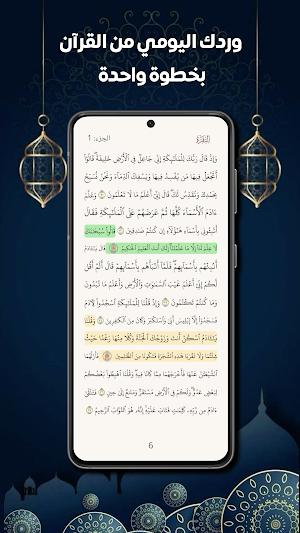 وردك اليومي من القرآن
بخطوة واحدة
الجزء: 1
البقرة
وَإِذْ قَالَ رَبُّكَ لِلْمَلَٰٓئِكَةِ إِنِّي جَاعِلٌ فِي ٱلْأَرْضِ خَلِيفَةً قَالُوٓا۟
أَتَجْعَلُ فِيهَا مَن يُفْسِدُ فِيهَا وَيَسْفِكُ ٱلدِّمَآءَ وَنَحْنُ نُسَبِّحُ
بِحَمْدِكَ وَنُقَدِّسُ لَكَ قَالَ إِنِّيٓ أَعْلَمُ مَا لَا تَعْلَمُونَ ٣٠ وَعَلَّمَ
ءَادَمَ ٱلْأَسْمَآءَ كُلَّهَا ثُمَّ عَرَضَهُمْ عَلَى ٱلْمَلَٰٓئِكَةِ فَقَالَ
أَنۢبِـُٔونِي بِأَسْمَآءِ هَٰٓؤُلَآءِ إِن كُنتُمْ صَٰدِقِينَ ٣١ قَالُوا۟ سُبْحَٰنَكَ
لَا عِلْمَ لَنَآ إِلَّا مَا عَلَّمْتَنَآ إِنَّكَ أَنتَ ٱلْعَلِيمُ ٱلْحَكِيمُ ٣٢ قَالَ يَٰٓـَٔادَمُ
أَنۢبِئْهُم بِأَسْمَآئِهِمْ فَلَمَّآ أَنۢبَأَهُم بِأَسْمَآئِهِمْ قَالَ أَلَمْ أَقُل
لَّكُمْ إِنِّيٓ أَعْلَمُ غَيْبَ ٱلسَّمَٰوَٰتِ وَٱلْأَرْضِ وَأَعْلَمُ مَا تُبْدُونَ
وَمَا كُنتُمْ تَكْتُمُونَ ٣٣ وَإِذْ قُلْنَا لِلْمَلَٰٓئِكَةِ ٱسْجُدُوا۟ لِـَٔادَمَ
فَسَجَدُوٓا۟ إِلَّآ إِبْلِيسَ أَبَىٰ وَٱسْتَكْبَرَ وَكَانَ مِنَ ٱلْكَٰفِرِينَ ٣٤ وَقُلْنَا
يَٰٓـَٔادَمُ ٱسْكُنْ أَنتَ وَزَوْجُكَ ٱلْجَنَّةَ وَكُلَا مِنْهَا رَغَدًا حَيْثُ
شِئْتُمَا وَلَا تَقْرَبَا هَٰذِهِ ٱلشَّجَرَةَ فَتَكُونَا مِنَ ٱلظَّٰلِمِينَ ٣٥ فَأَزَلَّهُمَا
ٱلشَّيْطَٰنُ عَنْهَا فَأَخْرَجَهُمَا مِمَّا كَانَا فِيهِ وَقُلْنَا ٱهْبِطُوا۟ بَعْضُكُمْ
لِبَعْضٍ عَدُوٌّ وَلَكُمْ فِي ٱلْأَرْضِ مُسْتَقَرٌّ وَمَتَٰعٌ إِلَىٰ حِينٍ ٣٦ فَتَلَقَّىٰٓ
ءَادَمُ مِن رَّبِّهِۦ كَلِمَٰتٍ فَتَابَ عَلَيْهِ إِنَّهُۥ هُوَ ٱلتَّوَّابُ ٱلرَّحِيمُ ٣٧
6